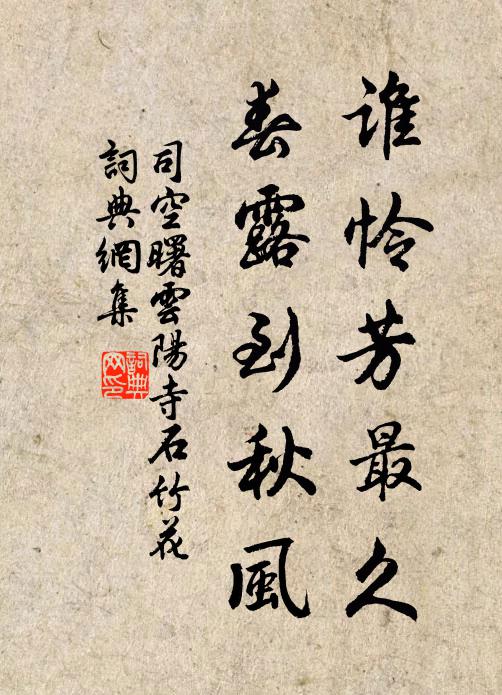 谁怜芳最久
春露到秋風
司空曙雲陽寺石竹花
詞典網集
詞典
网印